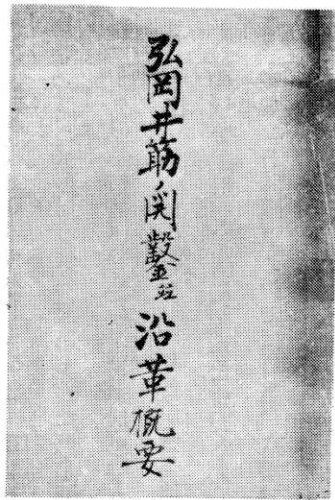 弘岡井筋ノ開鑿並沿革概要